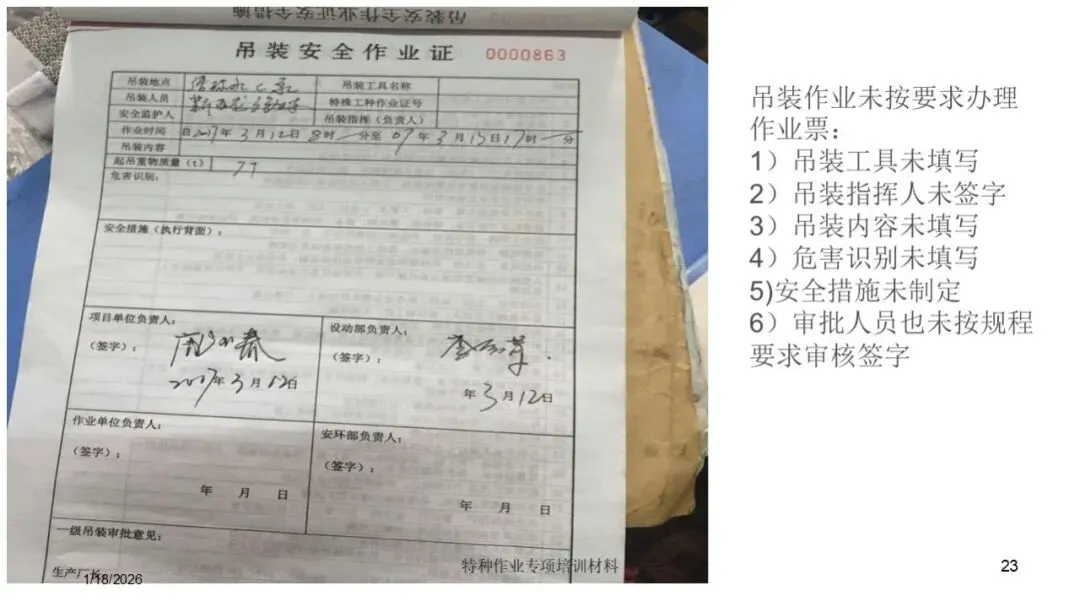 吊装安全作业证安全措施
吊装安全作业证 0000863
吊装地点
吊装工具名称
吊装人员
特殊工种作业证号
安全监护人
吊装指挥（负责人）
作业时间 自2017年3月12日8时一分至07年3月15日17时一分
吊装内容
起吊重物质量（t） 77
危害识别：
安全措施（执行背面）：
项目单位负责人：
（签字）：
2017年3月12日
设动部负责人：
（签字）：
年3月12日
作业单位负责人：
（签字）：
年 月 日
安环部负责人：
（签字）：
年 月 日
一级吊装审批意见：
生产厂长
1/18/2026
特种作业专项培训材料
吊装作业未按要求办理
作业票：
1）吊装工具未填写
2）吊装指挥人未签字
3）吊装内容未填写
4）危害识别未填写
5)安全措施未制定
6）审批人员也未按规程
要求审核签字
23